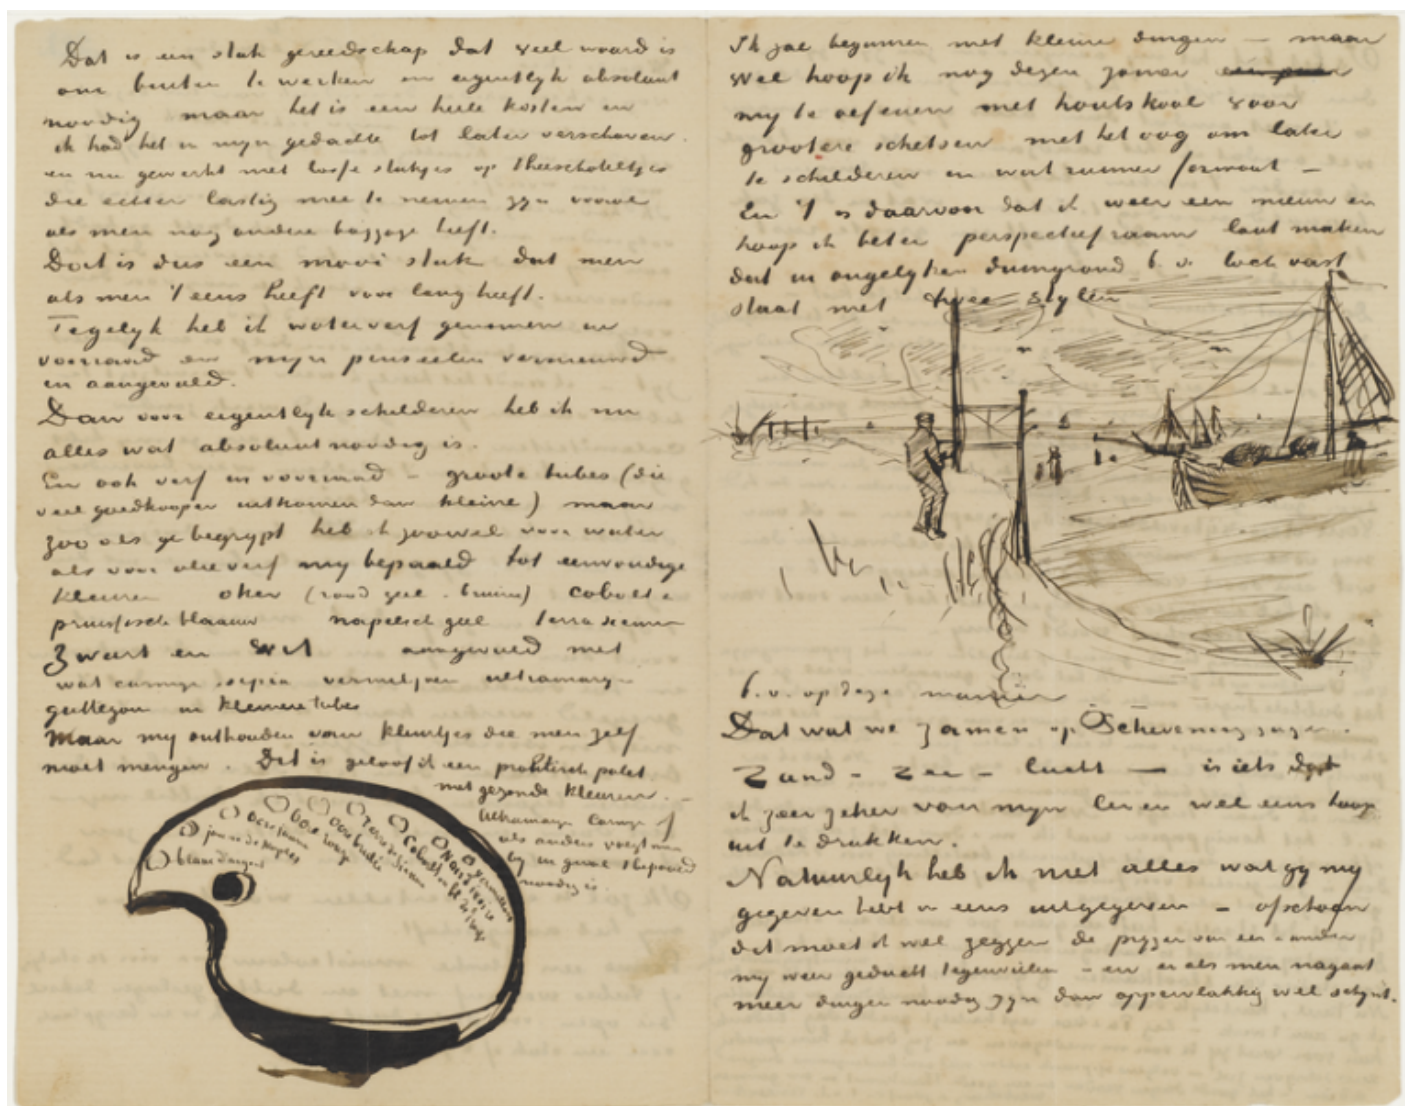 Dat is een stuk gereedschap dat veel waard is
om buiten te werken en eigentlyk absoluut
noodig maar het is een heele kosten en
ik had het in myn gedachte tot later verschoven
en nu gewerkt met losse stukjes op theeschoteltjes
die echter lastig mee te nemen zyn vooral
als men nog andere baggage heeft.
Dat is dus een mooi stuk dat men
als men 't eens heeft voor lang heeft.
Tegelyk heb ik waterverf genomen in
voorraad en myn penseelen vernieuwd
en aangevuld.
Dan voor eigentlyk schilderen heb ik nu
alles wat absoluut noodig is.
En ook verf in voorraad – groote tubes (die
veel goedkooper uitkomen dan kleine) maar
zooals ge begrypt heb ik zoowel voor water
als voor olieverf my bepaald tot eenvoudige
kleuren oker (rood geel bruin) cobalt &
pruissisch blaauw napelsch geel terra sienna
zwart en wit aangevuld met
wat carmyn sepia vermiljoen ultramaryn
guttegom in kleinere tubes
Maar my onthouden van kleurtjes die men zelf
moet mengen. Dit is geloof ik een praktisch palet
met gezonde kleuren. –
Ultramaryn Carmyn of
als anders voegt men
by in geval 't bepaald
noodig is.
blanc d'argent
jaune de naples
ocre jaune
ocre rouge
ocre brulée
terre de Sienne
Cobalt
Noir d'ivoire
vermillon
Ik zal beginnen met kleine dingen – maar
wel hoop ik nog dezen zomer een paar
my te oefenen met houtskool voor
grootere schetsen met het oog om later
te schilderen in wat ruimer formaat –
En 't is daarvoor dat ik weer een nieuw en
hoop ik beter perspectief raam laat maken
dat in ongelyken duingrond b.v. toch vast
staat met twee stylen
b.v. op deze manier
Dat wat we zamen op Schevening zagen
Zand – Zee – lucht – is iets dat
ik zeer zeker van myn leven wel eens hoop
uit te drukken.
Natuurlyk heb ik niet alles wat gy my
gegeven hebt in eens uitgegeven – ofschoon
dit moet ik wel zeggen de pryzen van een & ander
my weer geducht tegenvielen – en er als men nagaat
meer dingen noodig zyn dan oppervlakkig wel schynt.